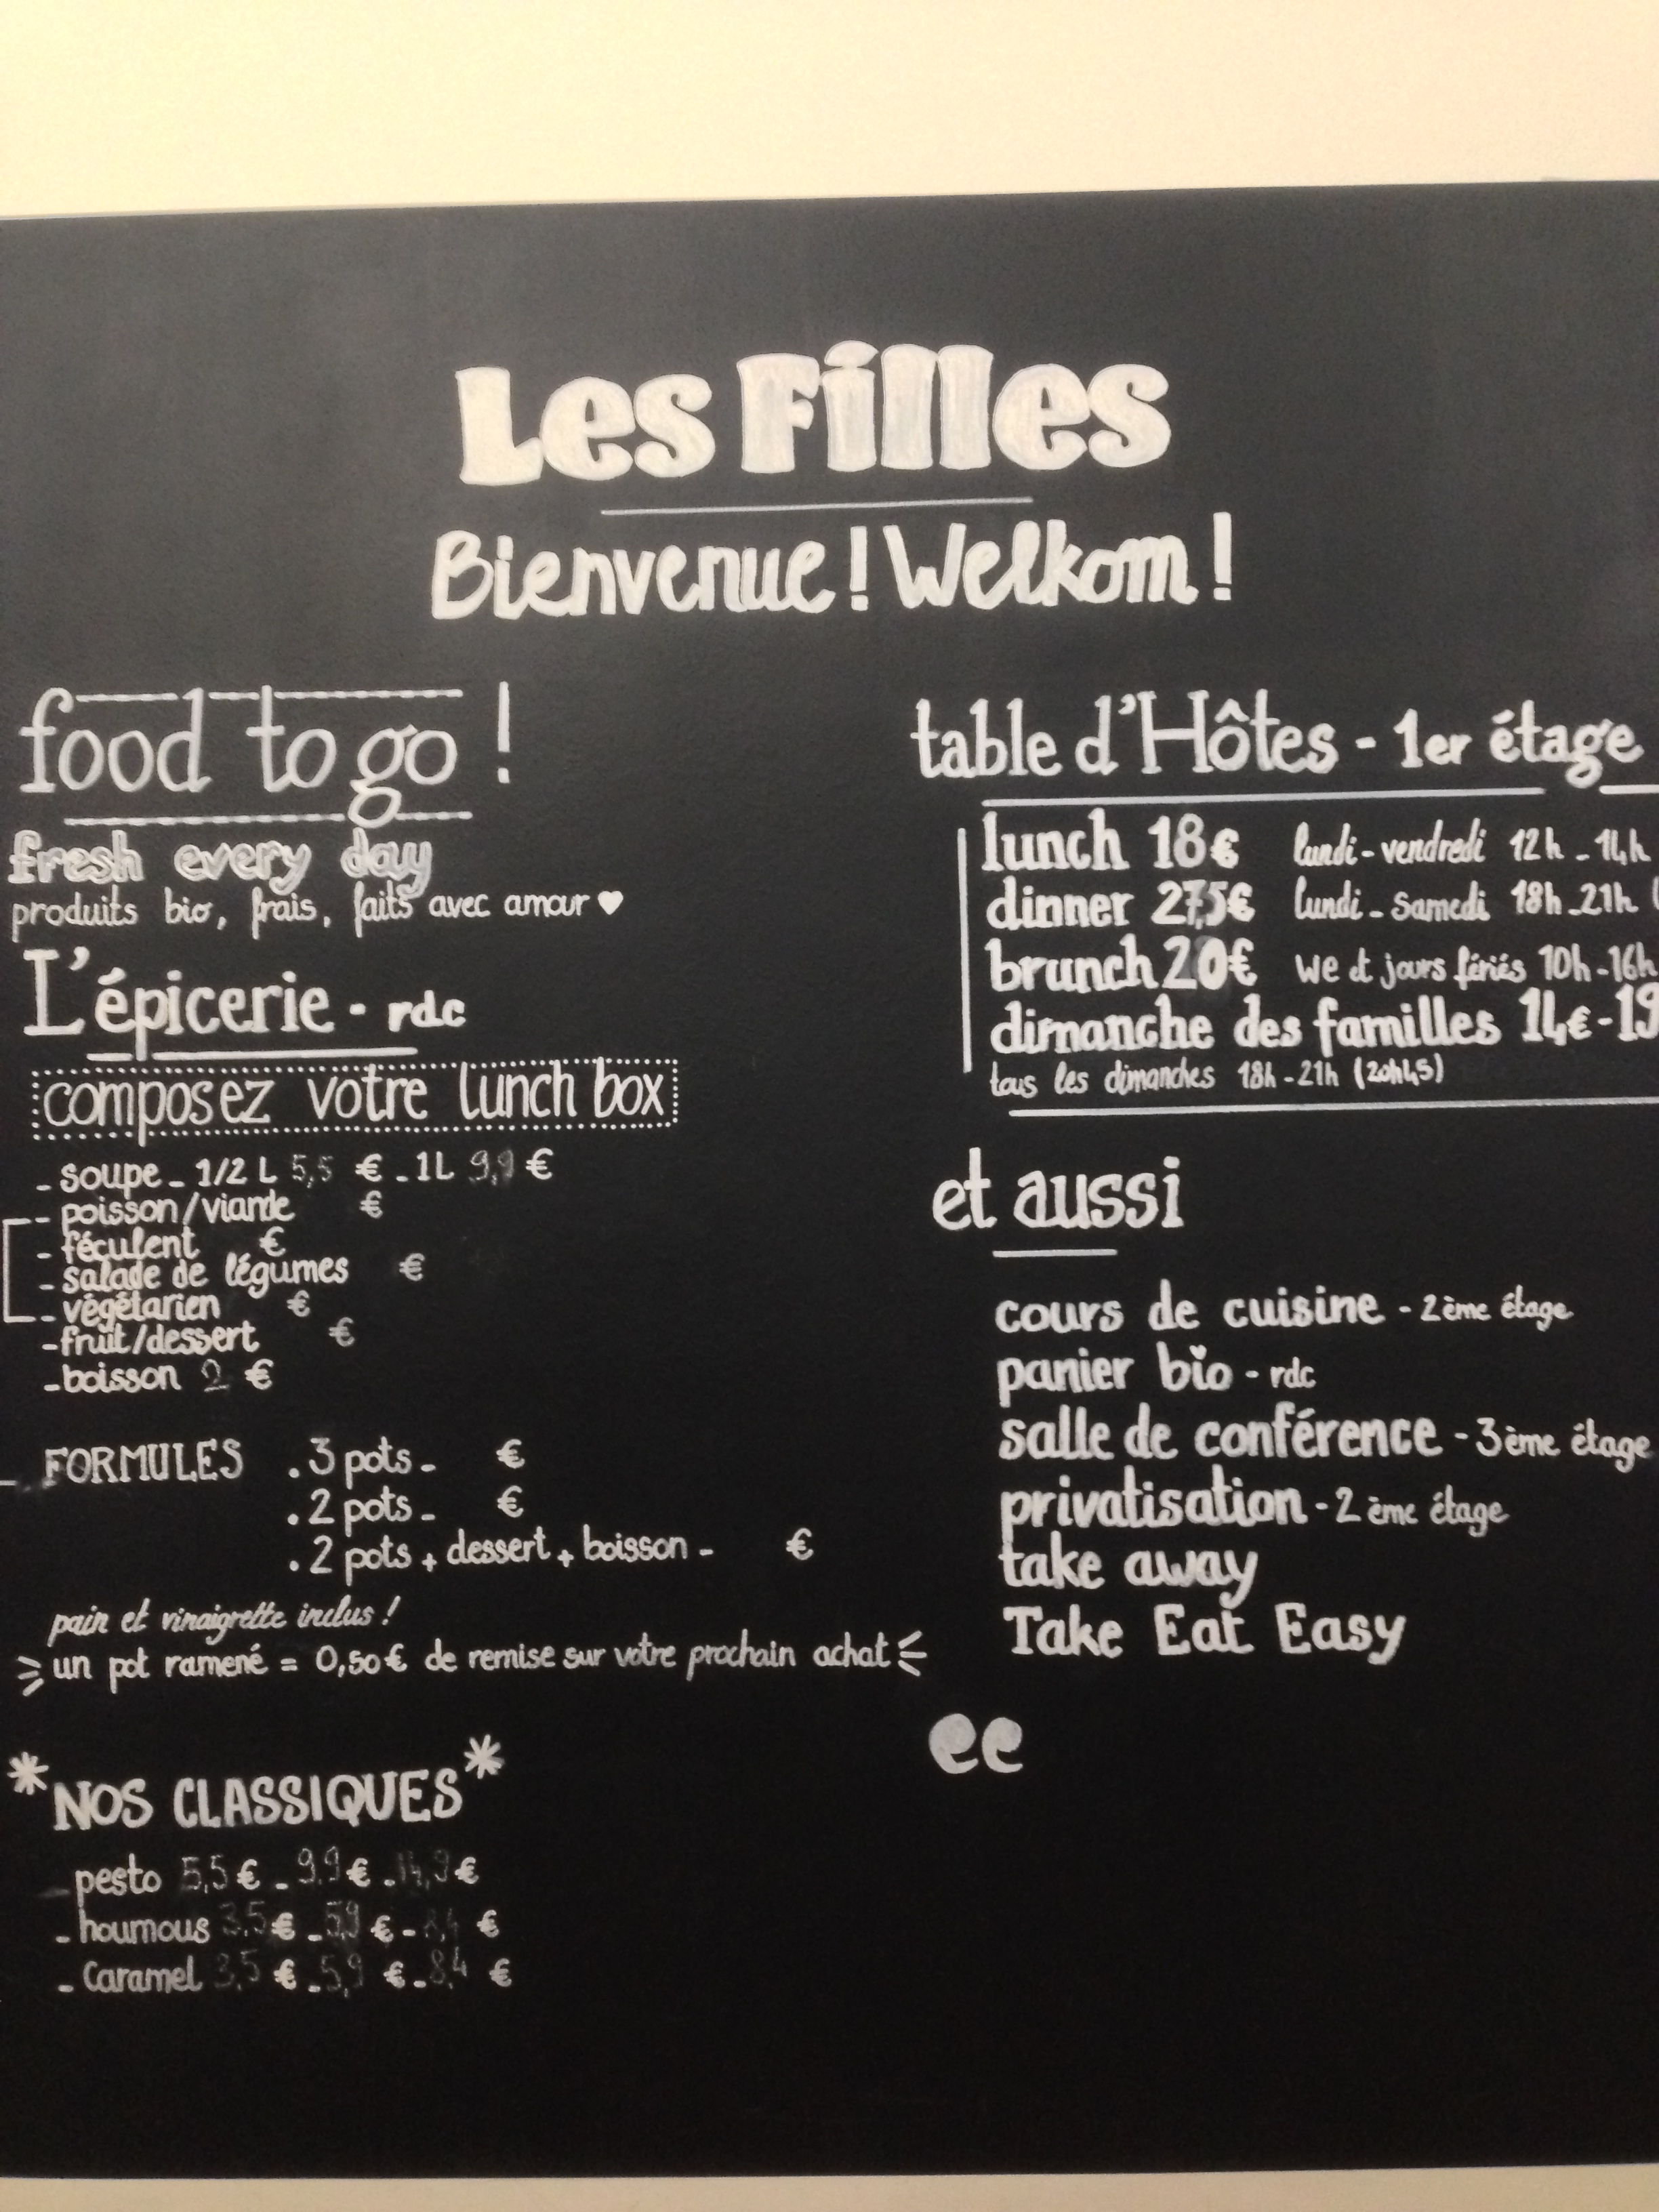 Les Filles
Bienvenue! Welkom!
food to go !
fresh every day
produits bio, frais, faits avec amour ♥
L'épicerie - rdc
composez votre lunch box
- soupe - 1/2 L 5,5 € - 1L 9,9 €
- poisson/viande €
- féculent €
- salade de légumes €
- végétarien €
- fruit/dessert €
- boisson 2 €
FORMULES . 3 pots - €
. 2 pots - €
. 2 pots + dessert + boisson - €
pain et vinaigrette inclus !
un pot ramené = 0,50€ de remise sur votre prochain achat
*NOS CLASSIQUES*
- pesto 5,5 € - 9,9 € - 14,9 €
- houmous 3,5 € - 5,9 € - 8,4 €
- Caramel 3,5 € - 5,9 € - 8,4 €
table d'Hôtes - 1er étage
lunch 18€ lundi - vendredi 12h - 14h
dinner 27,5€ lundi - samedi 18h - 21h (
brunch 20€ we et jours fériés 10h - 16h
dimanche des familles 14€ - 19
tous les dimanches 18h - 21h (20h45)
et aussi
cours de cuisine - 2ème étage
panier bio - rdc
salle de conférence - 3ème étage
privatisation - 2ème étage
take away
Take Eat Easy
ee